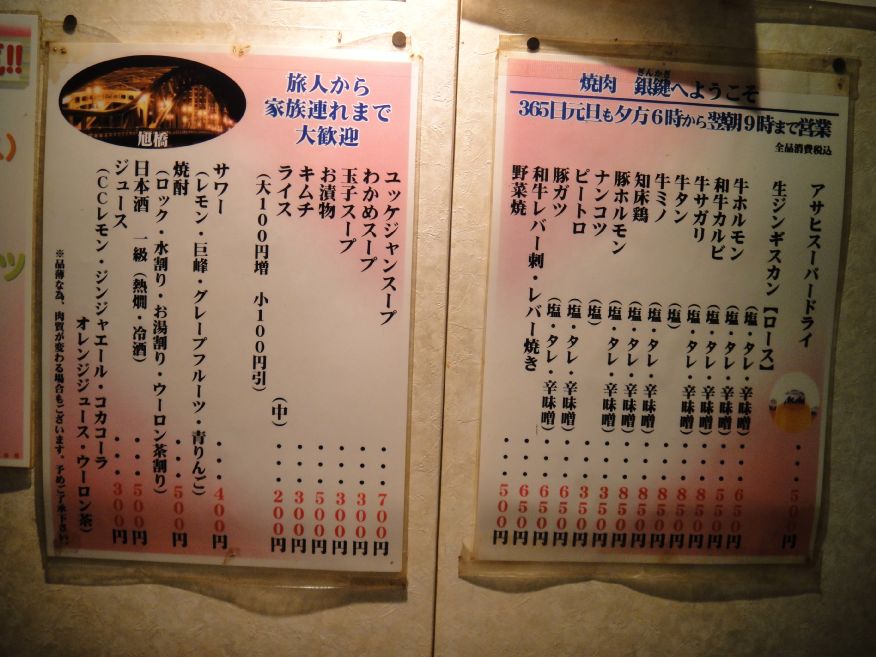 焼肉 銀鍵へようこそ
ぎんかぎ
365日元旦も夕方6時から翌朝9時まで営業
全品消費税込
アサヒスーパードライ ・・・・500円
生ジンギスカン【ロース】 ・・・・650円
牛ホルモン (塩・タレ・辛味噌)
和牛カルビ (塩・タレ・辛味噌)
牛サガリ (塩・タレ・辛味噌)
牛タン (塩・タレ・辛味噌)
牛ミノ (塩)
知床鶏 (塩・タレ・辛味噌)
豚ホルモン (塩・タレ・辛味噌)
ナンコツ (塩・タレ・辛味噌)
ビートロ (塩)
豚ガツ (塩・タレ・辛味噌)
和牛レバー刺・レバー焼き (塩・タレ・辛味噌) ・・・・650円
野菜焼 ・・・・500円
旭橋
旅人から
家族連れまで
大歓迎
ユッケジャンスープ ・・・・700円
わかめスープ ・・・・300円
玉子スープ ・・・・300円
お漬物 ・・・・500円
キムチ ・・・・300円
ライス (中)・・・・200円
(大100円増 小100円引)
サワー ・・・・400円
(レモン・巨峰・グレープフルーツ・青りんご)
焼酎 ・・・・500円
(ロック・水割り・お湯割り・ウーロン茶割り)
日本酒 一級(熱燗・冷酒) ・・・・500円
ジュース ・・・・300円
(CCレモン・ジンジャエール・コカコーラ
オレンジジュース・ウーロン茶)
※品薄な為、肉質が変わる場合もございます。予めご了承下さい。